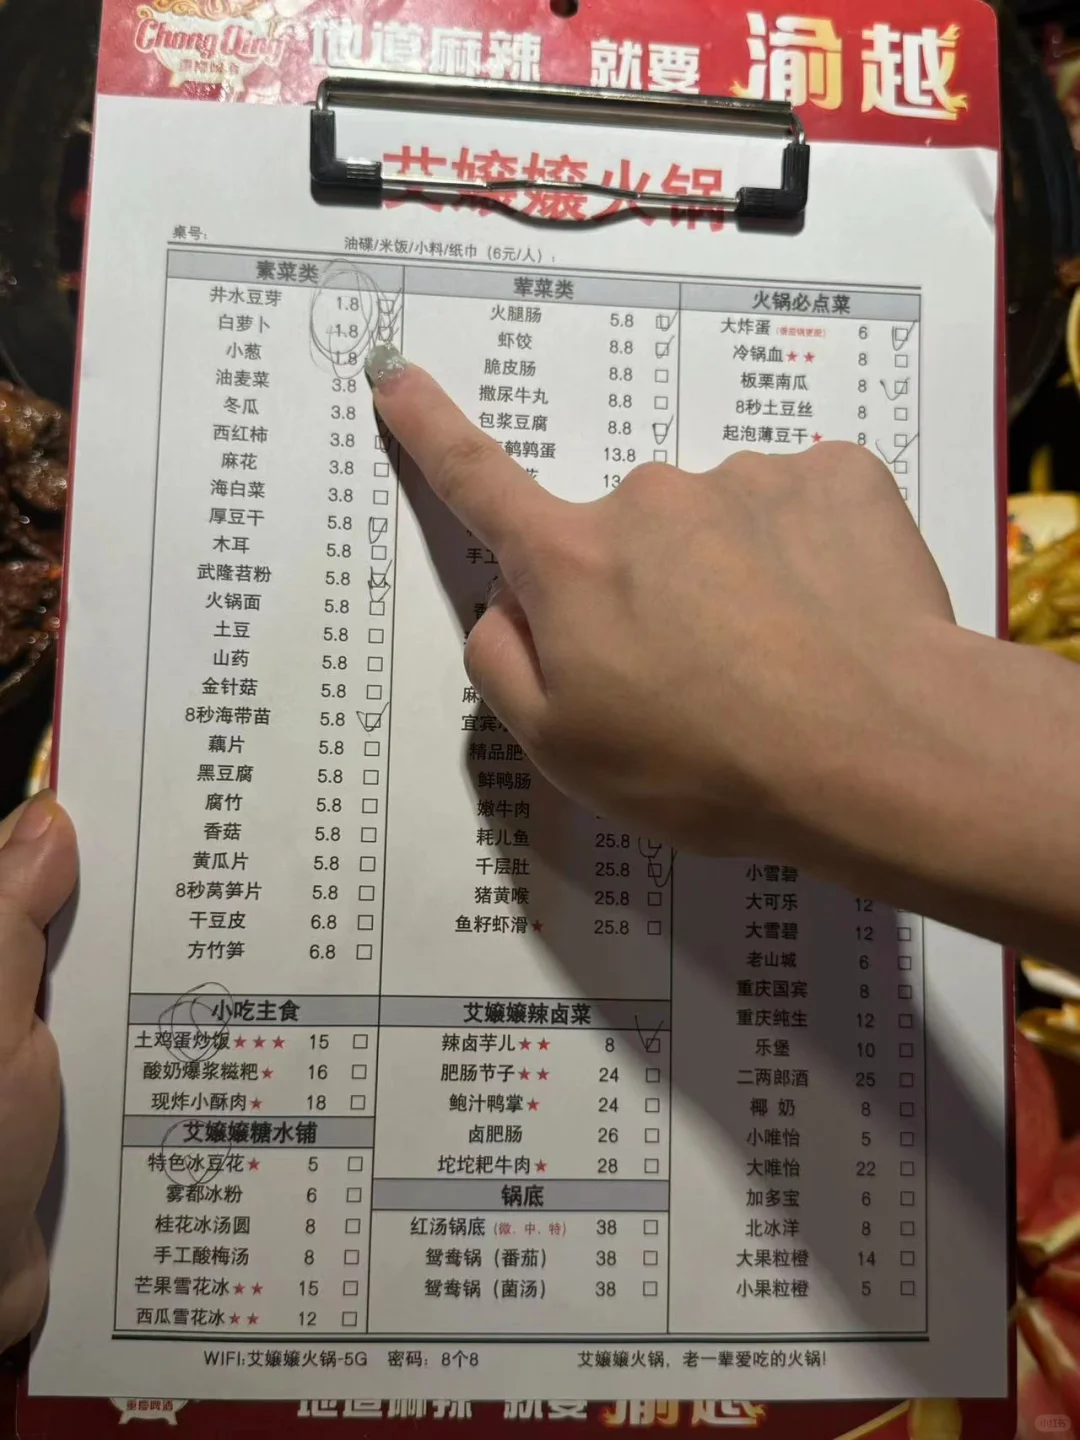 Chong Qing
重庆啤酒
地道麻辣 就要 渝越
艾嬢嬢火锅
桌号:
油碟/米饭/小料/纸巾（6元/人）:
素菜类
井水豆芽 1.8
白萝卜 1.8
小葱 1.8
油麦菜 3.8
冬瓜 3.8
西红柿 3.8
麻花 3.8
海白菜 3.8
厚豆干 5.8
木耳 5.8
武隆苕粉 5.8
火锅面 5.8
土豆 5.8
山药 5.8
金针菇 5.8
8秒海带苗 5.8
藕片 5.8
黑豆腐 5.8
腐竹 5.8
香菇 5.8
黄瓜片 5.8
8秒莴笋片 5.8
干豆皮 6.8
方竹笋 6.8
小吃主食
土鸡蛋炒饭★★★ 15
酸奶爆浆糍粑★ 16
现炸小酥肉★ 18
艾嬢嬢糖水铺
特色冰豆花★ 5
雾都冰粉 6
桂花冰汤圆 8
手工酸梅汤 8
芒果雪花冰★★ 15
西瓜雪花冰★★ 12
荤菜类
火腿肠 5.8
虾饺 8.8
脆皮肠 8.8
撒尿牛丸 8.8
包浆豆腐 8.8
鹌鹑蛋 13.8
13.
手工
麻
宜宾
精品肥
鲜鸭肠
嫩牛肉
耗儿鱼 25.8
千层肚 25.8
猪黄喉 25.8
鱼籽虾滑★ 25.8
艾嬢嬢辣卤菜
辣卤芋儿★★ 8
肥肠节子★★ 24
鲍汁鸭掌★ 24
卤肥肠 26
坨坨粑牛肉★ 28
锅底
红汤锅底（微、中、特） 38
鸳鸯锅（番茄） 38
鸳鸯锅（菌汤） 38
火锅必点菜
大炸蛋 6
冷锅血★★ 8
板栗南瓜 8
8秒土豆丝 8
起泡薄豆干★ 8
小雪碧
大可乐 12
大雪碧 12
老山城 6
重庆国宾 8
重庆纯生 12
乐堡 10
二两郎酒 25
椰 奶 8
小唯怡 5
大唯怡 22
加多宝 6
北冰洋 8
大果粒橙 14
小果粒橙 5
WIFI:艾嬢嬢火锅-5G 密码：8个8 艾嬢嬢火锅，老一辈爱吃的火锅!
重庆啤酒
地道麻辣 就要 渝越
小红书